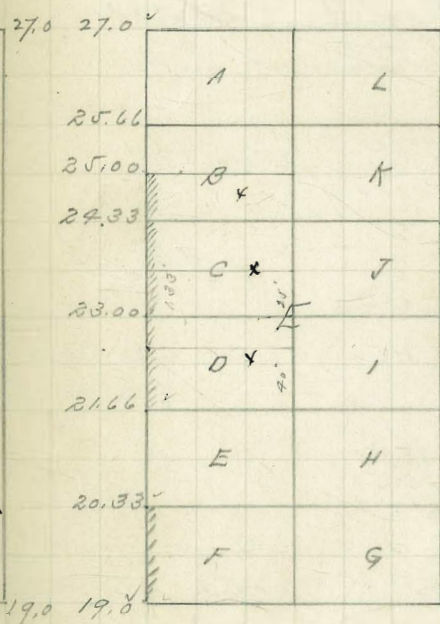 27.0 27.0
A L
25.66
25.00 B K
24.33
C J
1.33'
25'
23.00
D I
40'
21.66
E H
20.33
F G
19.0 19.0